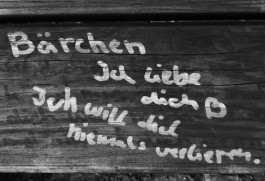 Bärchen
Ich liebe
dich B
Ich will dich
niemals verlieren.